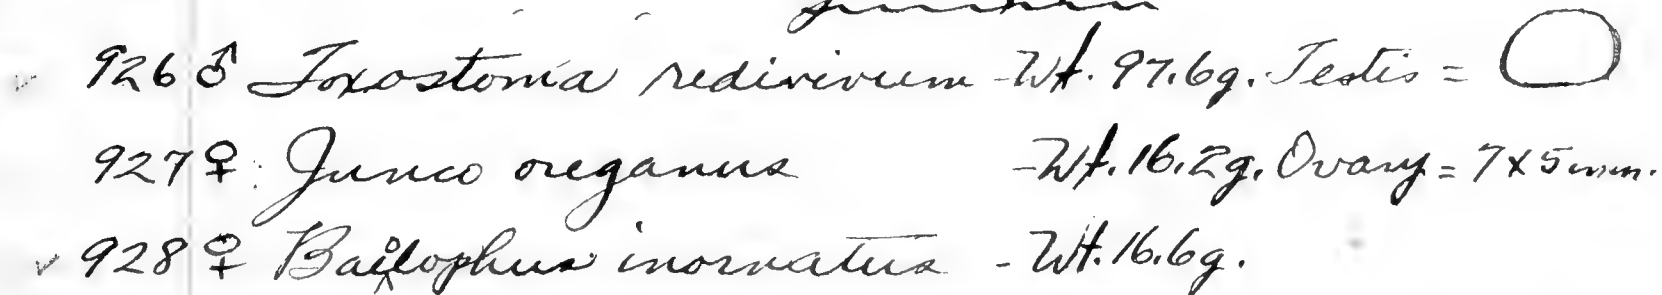 ✓ 926 ♂ Toxostoma redivivum - Wt. 97.6g. Testis =
927 ♀ Junco oreganus - Wt. 16.2g. Ovary = 7 x 5 mm.
✓ 928 ♀ Baeolophus inornatus - Wt. 16.6g.